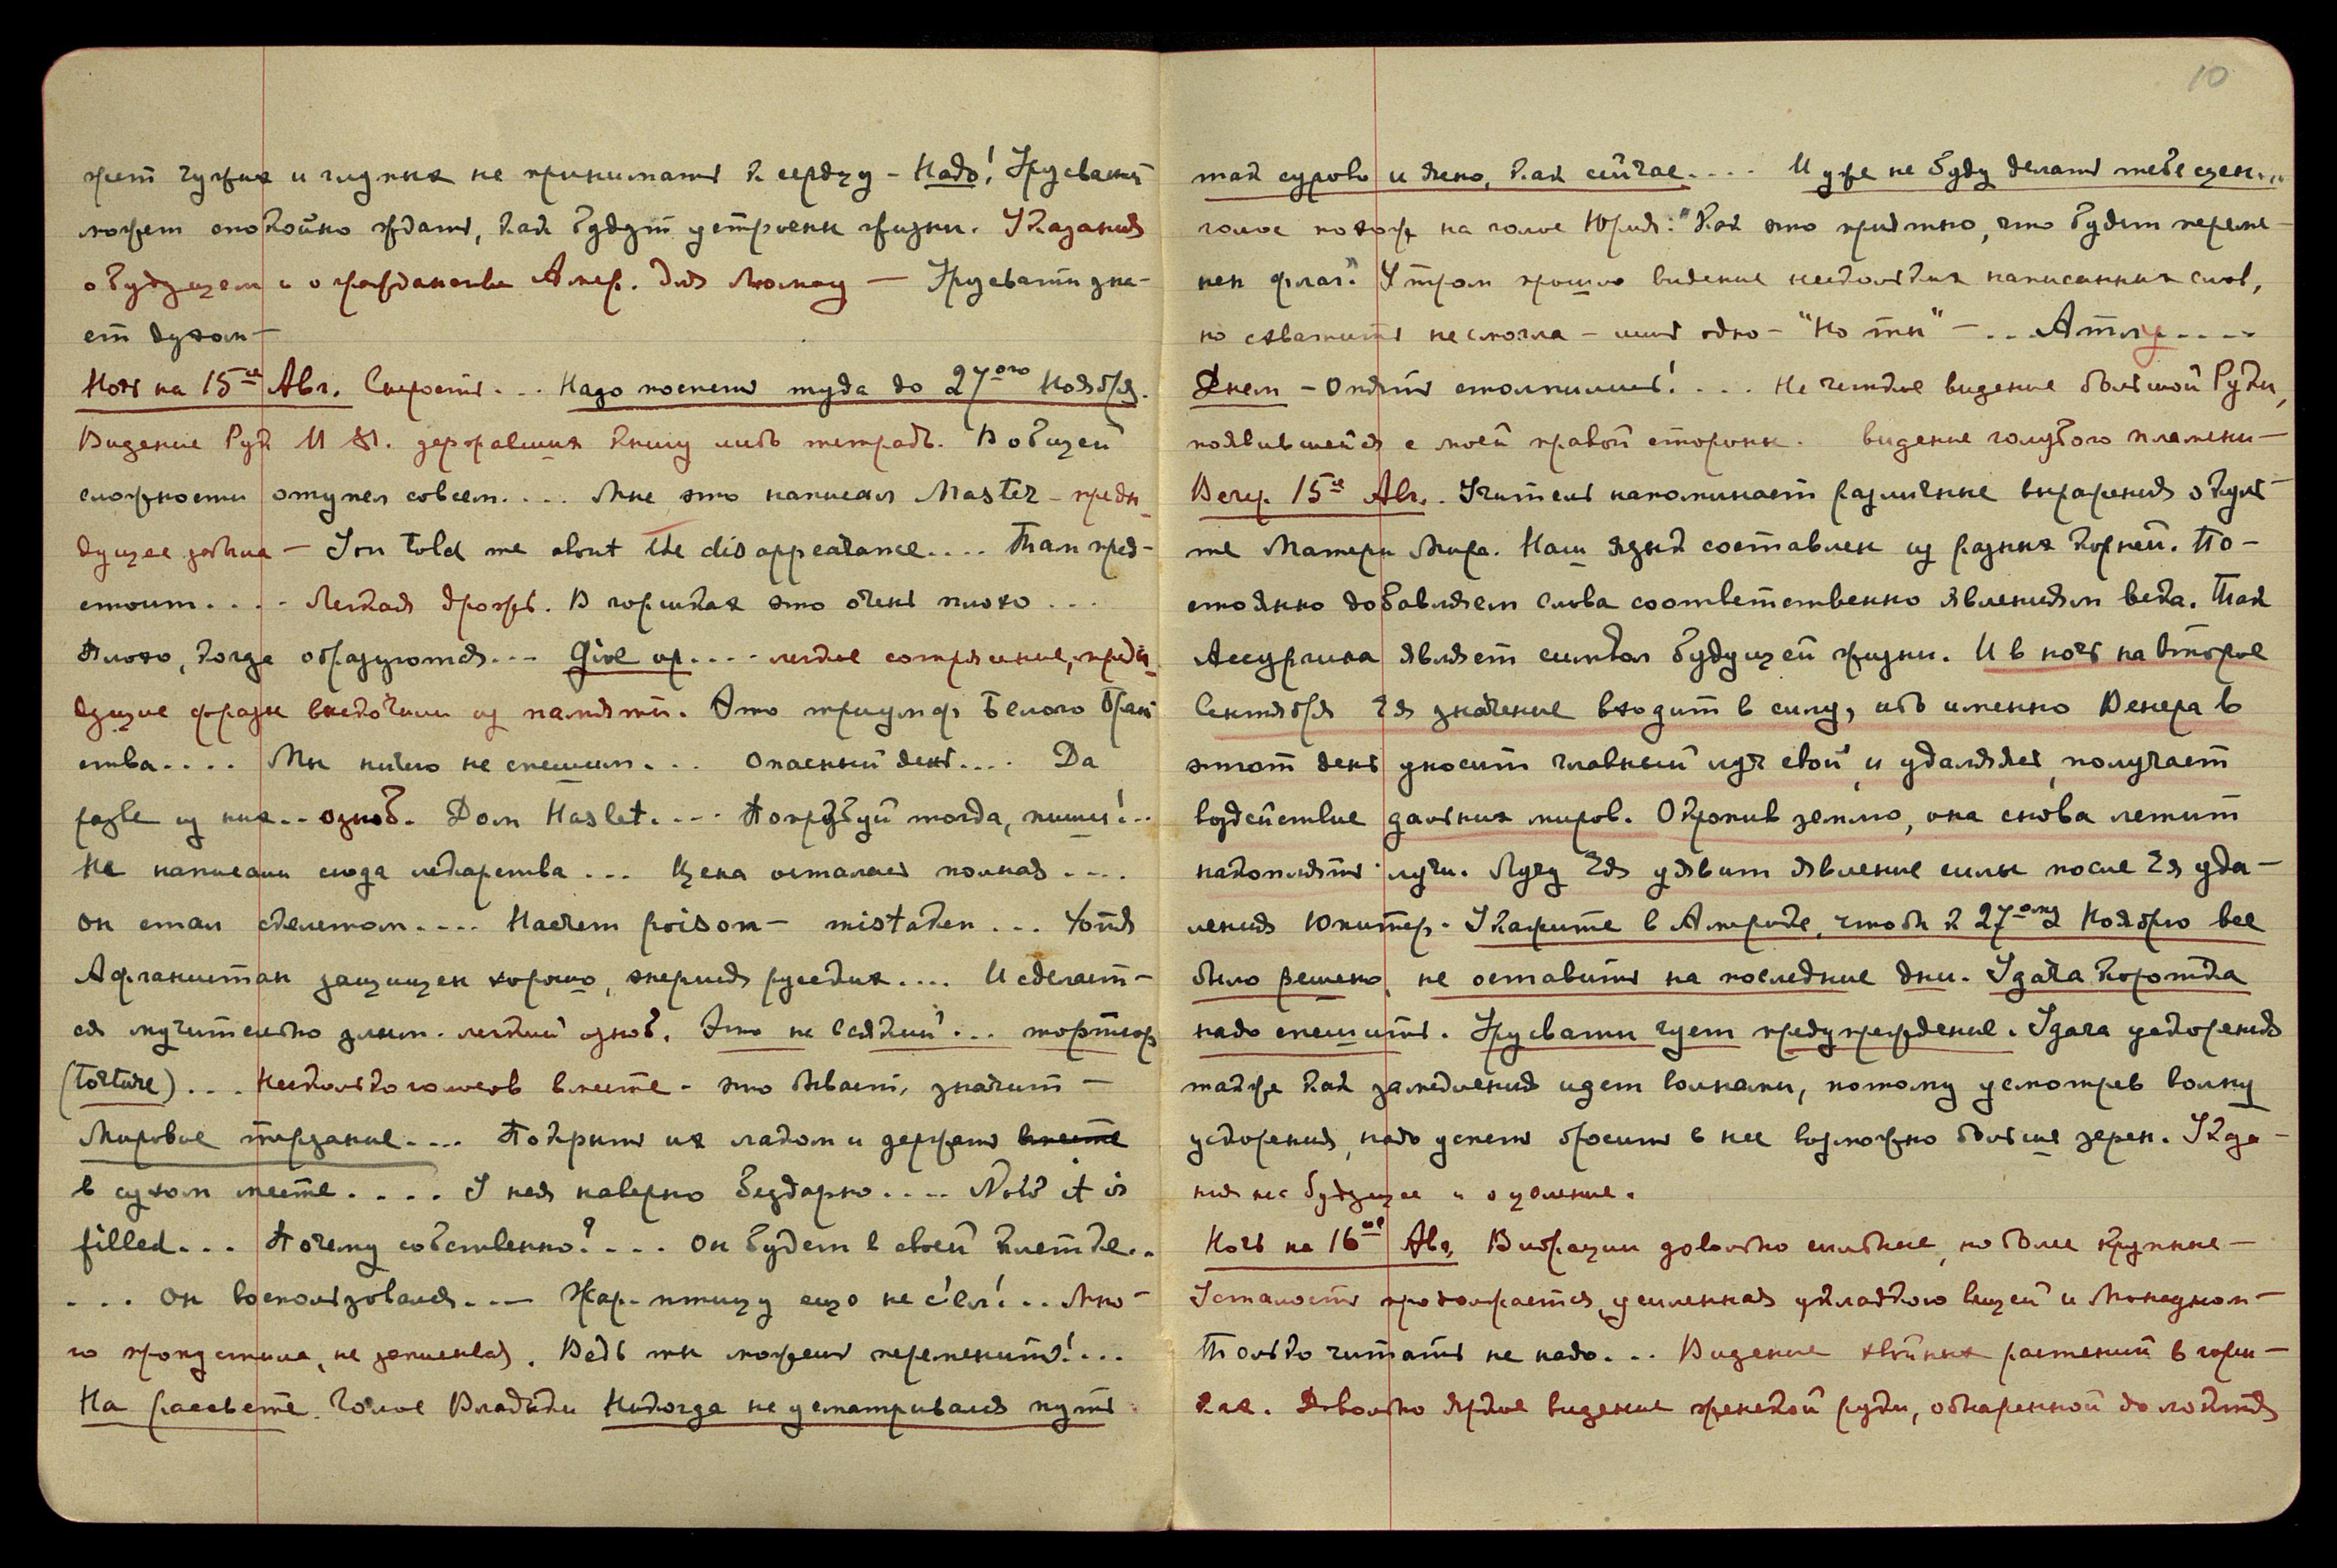 жет чужих и глупых не принимать к сердцу – Надо! Урусвати
может спокойно ждать, как будут устроены жизни. Указания
о будущем и о гражданстве Амер. для Люмоу — Урусвати зна-
ет духом –
Ночь на 15ое Авг. Скорость... Надо поспеть туда до 27ого Ноября.
Видение Рук М. державших книгу либо тетрадь. В общей
сложности отупел совсем.... Мне это написал Master – преды-
дущее забыла – You told me about the disappearance.... Там пред-
стоит.... Легкая дрожь. В горшках это очень плохо...
Плохо, когда образуются... Give up.... легкое сотрясение, преды-
дущие фразы выскочили из памяти. Это триумф Белого Брат-
ства.... Мы ничего не спешим... Опасный день.... Да
разве из них.. озноб. Дом Haslet.... Попробуй тогда, пиши!..
Не написали сюда лекарства... Цена осталась полная....
Он стал скелетом.... Насчет poison – mistaken... Хотя
Афганистан защищен хорошо, энергия русских.... И сделает-
ся мучительно злым. легкий озноб. Это не всякий!... тортюр
(torture)... Несколько голосов вместе – это бывает, значит –
Мировое терзание.... Покрыть их лаком и держать вместе
в сухом месте.... У нея наверно бездарно.... Now it is
filled... Почему собственно?.... Он будет в своей клетке..
... Он воспользовался.... Жар-птицу ещо не с'ел!... Мно-
го пропустила, не записывая. Ведь ты можешь переменить!...
На рассвете. Голос Владыки Никогда не усматривался путь
10
так сурово и ясно, как сейчас.... И уже не буду делать тебе сцен...
голос похож на голос Юрия: "Как это приятно, что будет переме-
нен флаг." Утром прошло видение нескольких написанных слов,
но схватить не смогла – лишь одно – "Но ты" – ...
Днем – Опять столпились!.... Не четкое видение большой Руки,
появившейся с моей правой стороны. видение голубого пламени –
Веч. 15ое Авг.. Учитель напоминает различные выражения о куль-
те Матери Мира. Наш язык составлен из разных корней. По-
стоянно добавляем слова соответственно явлениям века. Так
Ассургина являет символ будущей жизни. И в ночь на второе
Сентября Ея значение входит в силу, ибо именно Венера в
этот день уносит главный луч свой и удаляясь, получает
воздействие дальних миров. Окропив землю, она снова летит
накоплять лучи. Лучу Ея уявит явление силы после Ея уда-
ления Юпитер. Укажите в Америке, чтобы к 27ому Ноябрю все
было решено, не оставить на последние дни. Удача коротка
надо спешить. Урусвати чует предупреждение. Удача ускорения
также как замедления идет волнами, потому усмотрев волну
ускорения, надо успеть бросить в нее возможно больше зерен. Указа-
ния на будущее и о целение.
Ночь на 16ое Авг. Вибрации довольно сильные, но более крупные –
Усталость продолжается, усиленная укладкою вещей и
Только читать не надо... Видение хвойных растений в горш-
ках. Довольно яркое видение женской руки, обнаженной до локтя